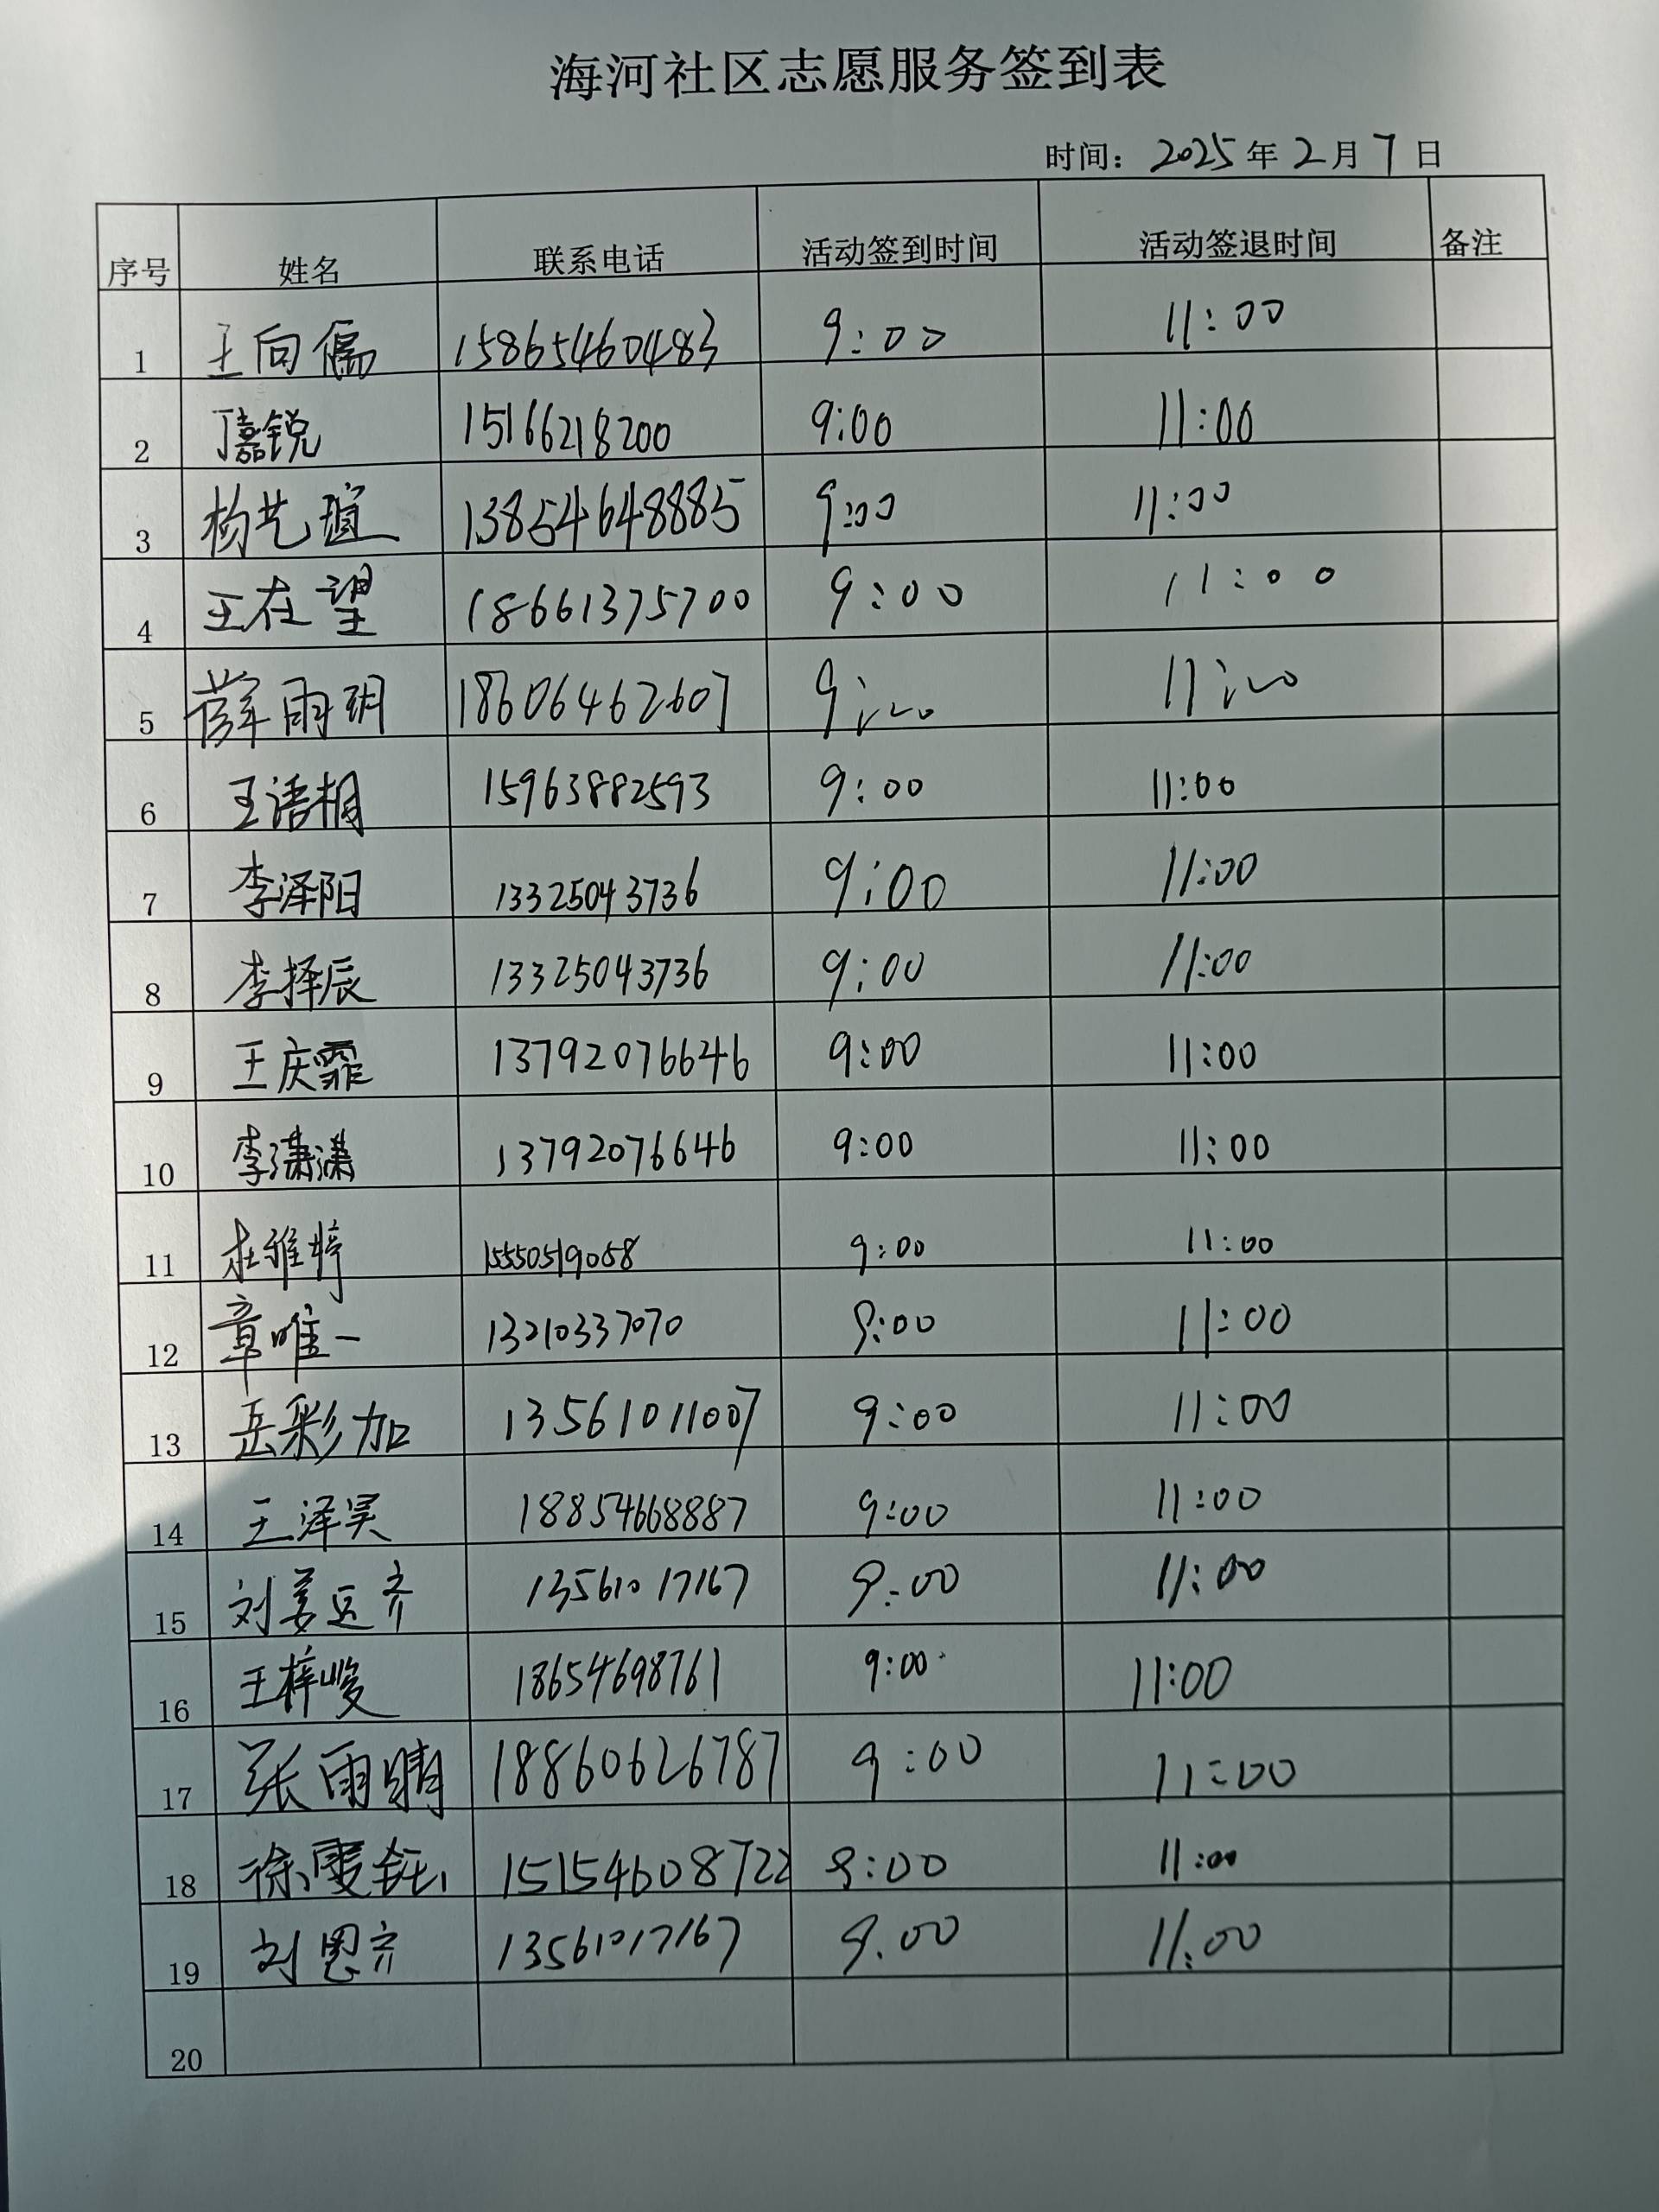 海河社区志愿服务签到表
时间：2025年2月7日
序号 姓名 联系电话 活动签到时间 活动签退时间 备注
1 王向儒 15865460483 9:00 11:00
2 丁嘉锐 15166218200 9:00 11:00
3 杨艺瑄 13854648885 9:00 11:00
4 王在望 18661375700 9:00 11:00
5 薛雨玥 18606462607 9:00 11:00
6 王语桐 15963882593 9:00 11:00
7 李泽阳 13325043736 9:00 11:00
8 李择辰 13325043736 9:00 11:00
9 王庆霏 13792076646 9:00 11:00
10 李潇潇 13792076646 9:00 11:00
11 杜雅婷 15550519058 9:00 11:00
12 章唯一 13210337070 9:00 11:00
13 岳彩加 13561011007 9:00 11:00
14 王泽昊 18854668887 9:00 11:00
15 刘姜运齐 13561017167 9:00 11:00
16 王梓峻 18654698761 9:00 11:00
17 张雨晴 18860626787 9:00 11:00
18 徐雯钰 15154608722 9:00 11:00
19 刘恩齐 13561017167 9.00 11:00
20